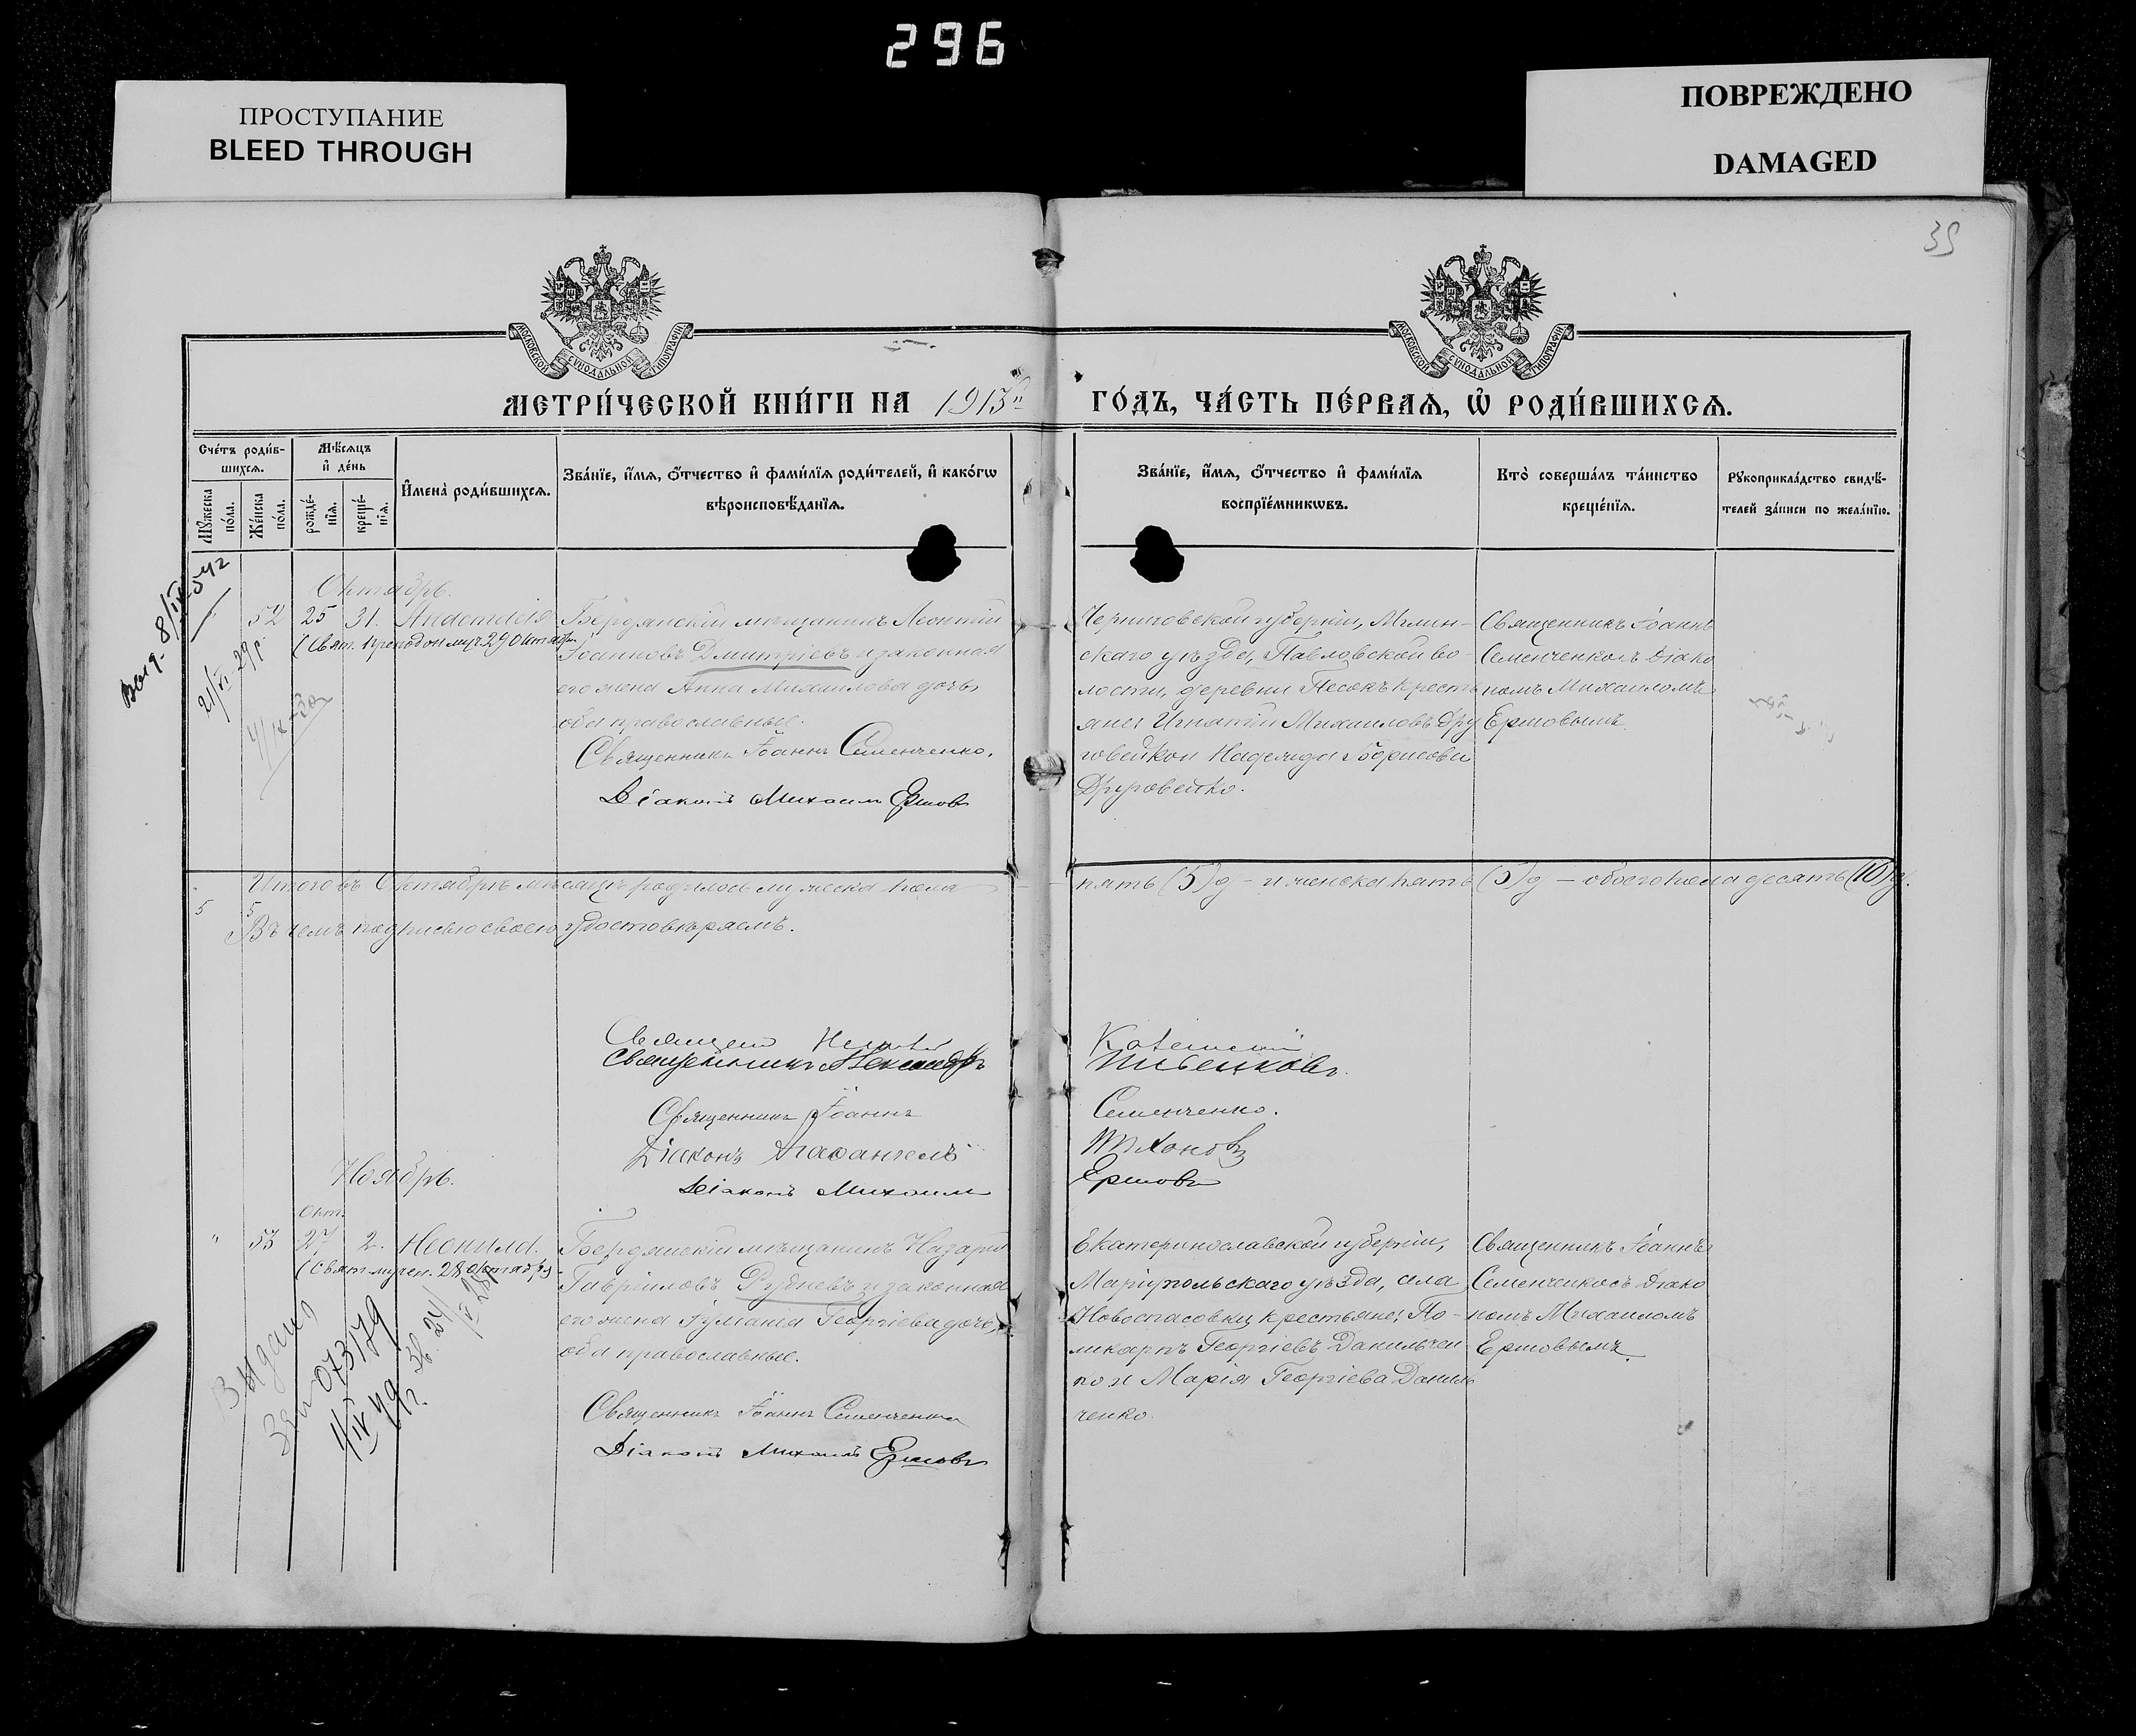 296
ПРОСТУПАНИЕ
BLEED THROUGH
ПОВРЕЖДЕНО
DAMAGED
35
МОСКОВСКОЙ СѴНОДАЛЬНОЙ ТИПОГРАФІИ
МОСКОВСКОЙ СѴНОДАЛЬНОЙ ТИПОГРАФІИ
МЕТРИ́ЧЕСКОЙ КНИ́ГИ НА 1913й ГО́ДЪ, ЧА́СТЬ ПЕ́РВАѦ, Ѡ҆ РОДИ́ВШИХСѦ.
Сче́тъ роди́в-
шихсѧ.
Мꙋжеска по́ла.
Же́нска по́ла.
Мѣ́сѧцъ
и҆ де́нь
рожде́-
нїѧ.
креще́-
нїѧ.
И҆мена̀ роди́вшихсѧ.
Зва́нїе, и҆́мѧ, ѻ҆́тчество и҆ фами́лїѧ роди́телей, и҆ како́гѡ
вѣроисповѣ́данїѧ.
Зва́нїе, и҆́мѧ, ѻ҆́тчество и҆ фами́лїѧ
воспрїе́мникѡвъ.
Кто̀ соверша́лъ та́инство
креще́нїѧ.
Рꙋкоприкла́дство свидѣ́-
телей за́писи по жела́нїю.
Октябрь.
52 25 31. Анастасія
(Свят. преподомуч. 29 октября)
Бердянскій мѣщанинъ Леонтій
Іоанновъ Дмитріевъ и законная
его жена Анна Михаилова дочь,
оба православные.
Священникъ Іоаннъ Семенченко.
Діаконъ Михаилъ Ершовъ
Черниговской губерніи, Мглин-
скаго уѣзда, Павловской во-
лости, деревни Песокъ крестья
яне: Игнатій Михаиловъ Дру
говейко и Надежда Борисова
Друговейко.
Священникъ Іоаннъ
Семенченко съ Діако
номъ Михаиломъ
Ершовымъ.
Итого въ Октябрѣ мѣсяцѣ родилось мужеска пола пять (5) д – и женска пять (5) д – обоего пола десять (10) д.
5 5
Въ чемъ подписью своею удостовѣряемъ.
Священникъ Александръ
Священникъ Іоаннъ Семенченко.
Діаконъ Агафангелъ Тихоновъ
Діаконъ Михаилъ Ершовъ
Ноябрь.
Окт.
" 53 27 2. Неонила.
(Свят. мучен. 28 октября)
Бердянскій мѣщанинъ Назарій
Гавріиловъ Рудневъ и законная
его жена Іуліанія Георгіева дочь,
оба православные.
Священникъ Іоаннъ Семенченко
Діаконъ Михаилъ Ершовъ
Екатеринославской губерніи,
Маріупольскаго уѣзда, села
Новоспасовки, крестьяне: По-
ликарпъ Георгіевъ Данильчен
ко и Марія Георгіева Даниль
ченко.
Священникъ Іоаннъ
Семенченко съ Діако
номъ Михаиломъ
Ершовымъ.
Выдано
073179